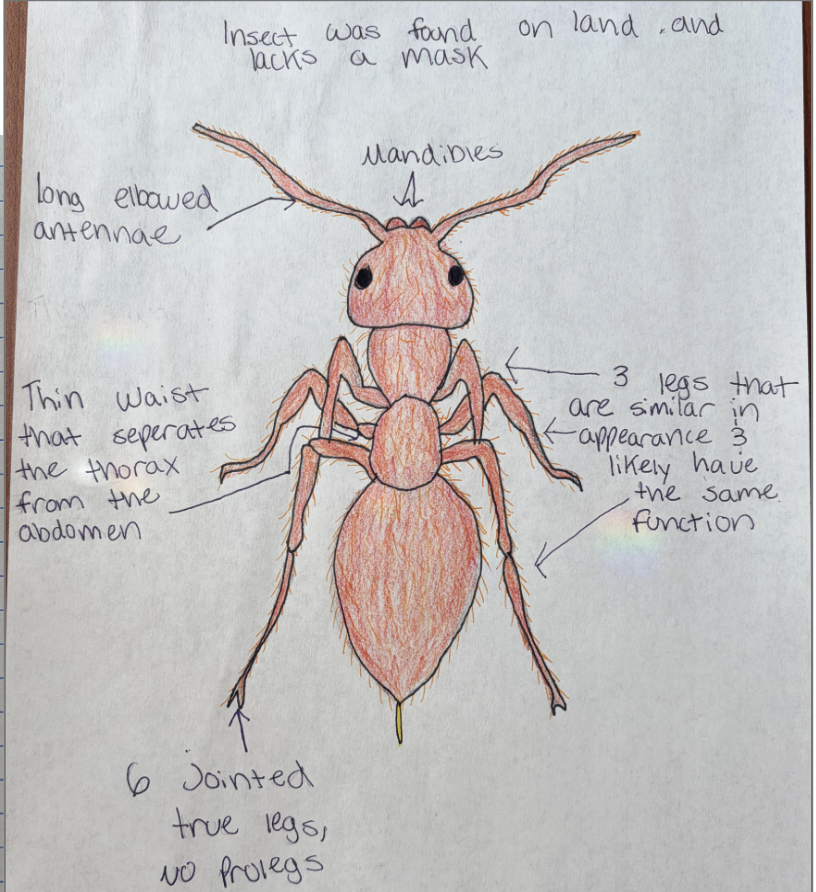 Insect was found on land, and
lacks a mask
Mandibles
long elbowed
antennae
Thin waist
that seperates
the thorax
from the
abdomen
3 legs that
are similar in
appearance &
likely have
the same
function
6 Jointed
true legs,
no prolegs